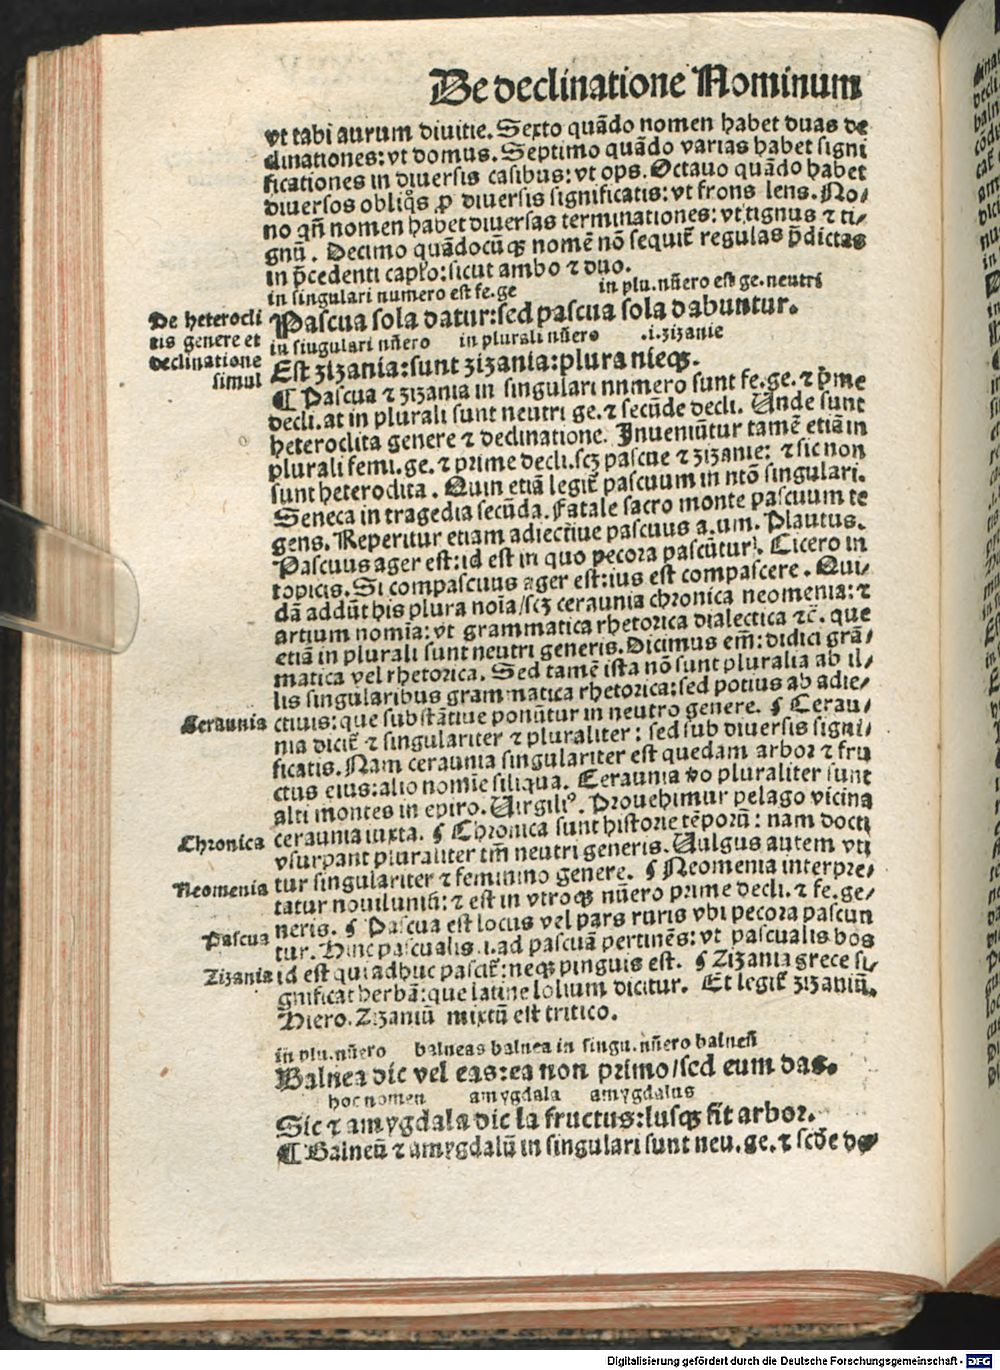 De declinatione Nominum
vt tabi aurum diuitie. Sexto quãdo nomen habet duas de
clinationes: vt domus. Septimo quãdo varias habet signi
ficationes in diuersis casibus: vt ops. Octauo quãdo habet
diuersos obliq̃s ꝓ diuersis significatis: vt frons lens. No/
no qñ nomen habet diuersas terminationes: vt tignus ⁊ ti/
gnũ. Decimo quãdocũqꝫ nomẽ nõ sequit᷑ regulas p̃dictas
in p̃cedenti cap̃lo: sicut ambo ⁊ duo.
in singulari numero est fe.ge in plu.nũero est ge.neutri
De heterocli
tis genere et
declinatione
simul
Pascua sola datur: sed pascua sola dabuntur.
in singulari nũero in plurali nũero .i.zizanie
Est zizania: sunt zizania: plura nieqꝫ.
¶ Pascua ⁊ zizania in singulari nnmero sunt fe.ge. ⁊ p̃me
decli. at in plurali sunt neutri ge. ⁊ secũde decli. Unde sunt
heteroclita genere ⁊ declinatione. Inueniũtur tamẽ etiã in
plurali femi.ge. ⁊ prime decli. scꝫ pascue ⁊ zizanie: ⁊ sic non
sunt heteroclita. Quin etiã legit᷑ pascuum in ntõ singulari.
Seneca in tragedia secũda. Fatale sacro monte pascuum te
gens. Reperitur etiam adiectiue pascuus a.um. Plautus.
Pascuus ager est: id est in quo pecora pascũtur. Cicero in
topicis. Si compascuus ager est: ius est compascere. Qui/
dã addũt his plura noĩa/scꝫ ceraunia chronica neomenia: ⁊
artium nomĩa: vt grammatica rhetorica dialectica ⁊c̃. que
etiã in plurali sunt neutri generis. Dicimus em̃: didici grã/
matica vel rhetorica. Sed tamẽ ista nõ sunt pluralia ab il/
lis singularibus grammatica rhetorica: sed potius ab adie/
Ceraunia ctiuis: que substãtiue ponũtur in neutro genere. ¶ Cerau/
nia dicit᷑ ⁊ singulariter ⁊ pluraliter: sed sub diuersis signi/
ficatis. Nam ceraunia singulariter est quedam arbor ⁊ fru
ctus eius: alio nomĩe siliqua. Ceraunia ṽo pluraliter sunt
alti montes in epiro. Uirgiliꝰ. Prouehimur pelago vicina
Chronica ceraunia iuxta. ¶ Chronica sunt historie tẽporũ: nam docti
vsurpant pluraliter tm̃ neutri generis. Uulgus autem vti
Neomenia tur singulariter ⁊ feminino genere. ¶ Neomenia interpre/
tatur nouiluniũ: ⁊ est in vtroqꝫ nũero prime decli. ⁊ fe.ge/
Pascua neris. ¶ Pascua est locus vel pars ruris vbi pecora pascun
tur. Hinc pascualis .i. ad pascuã pertinẽs: vt pascualis bos
Zizania id est qui adhuc pascit᷑: neqꝫ pinguis est. ¶ Zizania grece si/
gnificat herbã: que latine lolium dicitur. Et legit᷑ zizaniũ.
Hiero. Zizaniũ mixtũ est tritico.
in plu.nũero balneas balnea in singu.nũero balneũ
Balnea dic vel eas: ea non primo/sed eum das.
hoc nomen amygdala amygdalus
Sic ⁊ amygdala dic la fructus: lusqꝫ fit arbor.
¶ Balneũ ⁊ amygdalũ in singulari sunt neu.ge. ⁊ scd̃e de
Digitalisierung gefördert durch die Deutsche Forschungsgemeinschaft - DFG